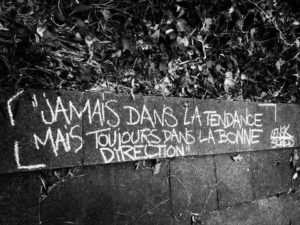 "JAMAIS DANS LA TENDANCE
MAIS TOUJOURS DANS LA BONNE
DIRECTION"